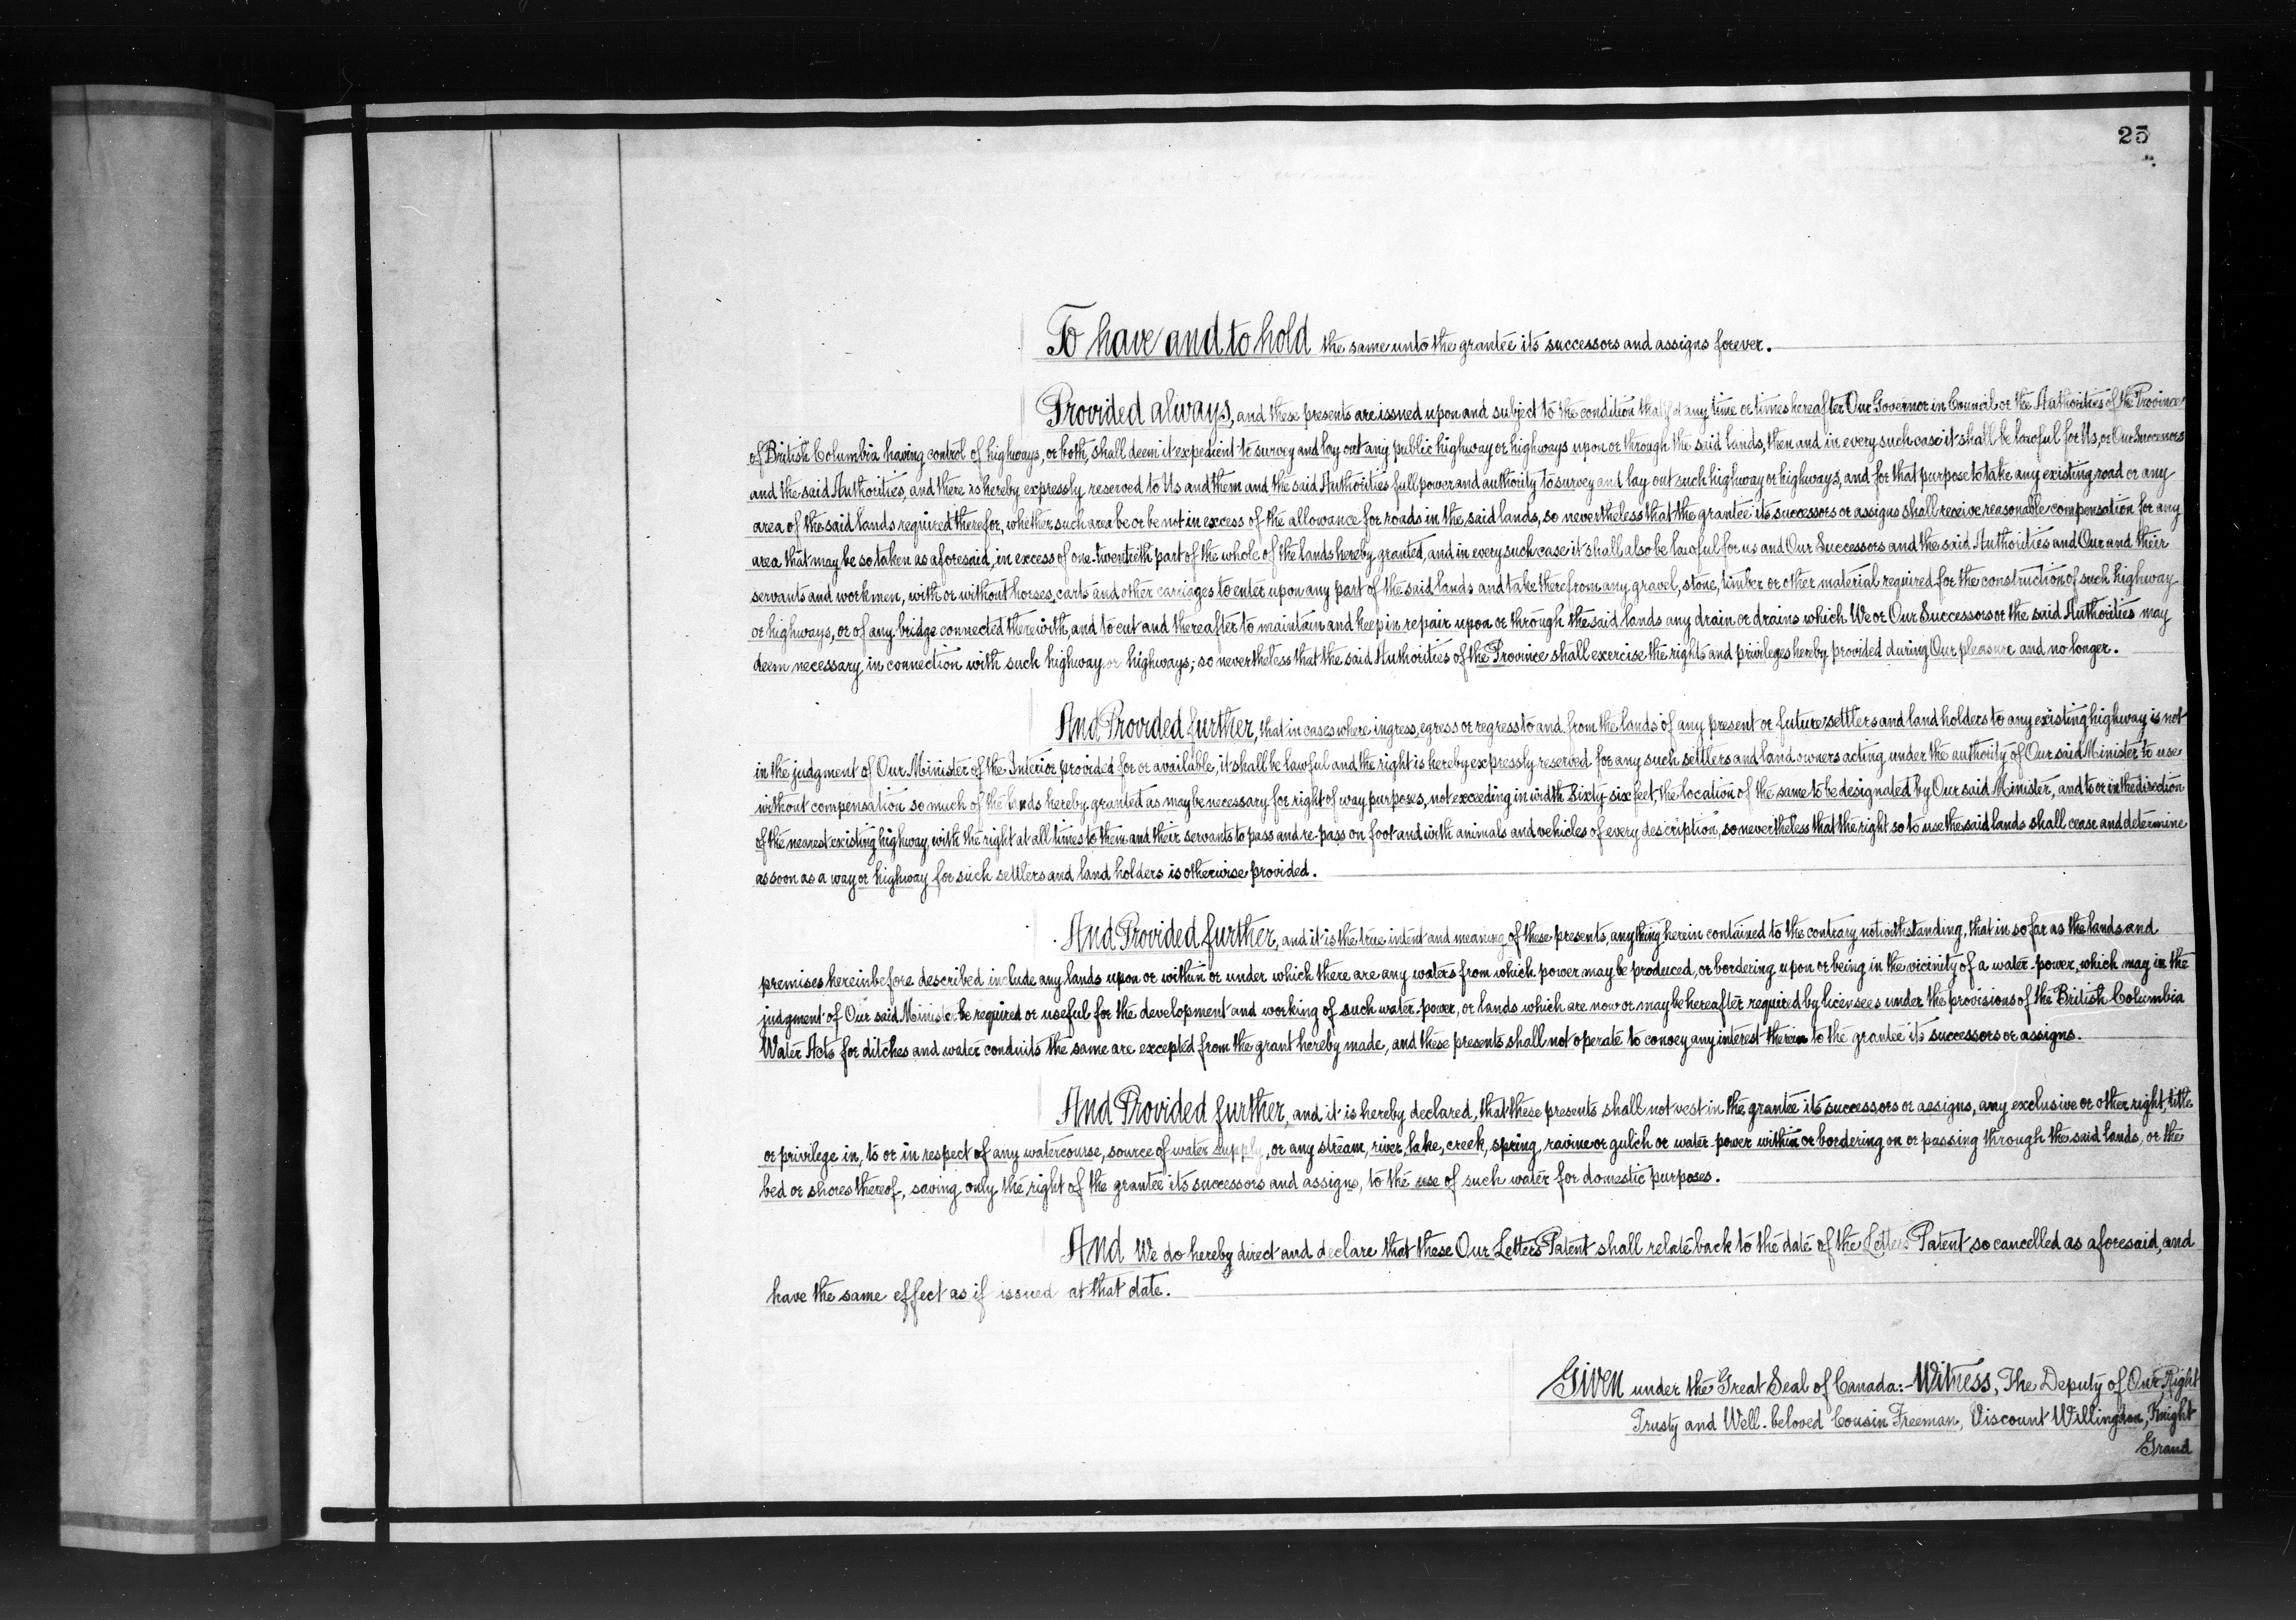 25
To have and to hold the same unto the grantee its successors and assigns forever.
Provided always, and these presents are issued upon and subject to the condition that if at any time or times hereafter Our Governor in Council or the Authorities of the Province
of British Columbia having control of highways, or both, shall deem it expedient to survey and lay out any public highway or highways upon or through the said lands, then and in every such case it shall be lawful for Us, or Our Successors
and the said Authorities, and there is hereby expressly reserved to Us and them and the said Authorities full power and authority to survey and lay out such highway or highways, and for that purpose to take any existing road or any
area of the said lands required therefor, whether such area be or be not in excess of the allowance for roads in the said lands, so nevertheless that the grantee its successors or assigns shall receive reasonable compensation for any
area that may be so taken as aforesaid, in excess of one-twentieth part of the whole of the lands hereby granted, and in every such case it shall also be lawful for us and Our Successors and the said Authorities and Our and their
servants and workmen, with or without horses, carts and other carriages to enter upon any part of the said lands and take therefrom any gravel, stone, timber or other material required for the construction of such highway
or highways, or of any bridge connected therewith, and to cut and thereafter to maintain and keep in repair upon or through the said lands any drain or drains which We or Our Successors or the said Authorities may
deem necessary in connection with such highway or highways; so nevertheless that the said Authorities of the Province shall exercise the rights and privileges hereby provided during Our pleasure and no longer.
And Provided further, that in cases where ingress, egress or regress to and from the lands of any present or future settlers and land holders to any existing highway is not
in the judgment of Our Minister of the Interior provided for or available, it shall be lawful and the right is hereby expressly reserved for any such settlers and land owners acting under the authority of Our said Minister to use
without compensation so much of the lands hereby granted as may be necessary for right of way purposes, not exceeding in width Sixty-six feet, the location of the same to be designated by Our said Minister, and to or in the direction
of the nearest existing highway, with the right at all times to them and their servants to pass and re-pass on foot and with animals and vehicles of every description, so nevertheless that the right so to use the said lands shall cease and determine
as soon as a way or highway for such settlers and land holders is otherwise provided.
And Provided further, and it is the true intent and meaning of these presents, anything herein contained to the contrary notwithstanding, that in so far as the lands and
premises hereinbefore described include any lands upon or within or under which there are any waters from which power may be produced, or bordering upon or being in the vicinity of a water-power, which may in the
judgment of Our said Minister be required or useful for the development and working of such water-power, or lands which are now or may be hereafter required by licensees under the provisions of the British Columbia
Water Acts for ditches and water conduits the same are excepted from the grant hereby made, and these presents shall not operate to convey any interest therein to the grantee its successors or assigns.
And Provided further, and it is hereby declared, that these presents shall not vest in the grantee its successors or assigns, any exclusive or other right, title
or privilege in, to or in respect of any watercourse, source of water supply, or any stream, river, lake, creek, spring, ravine or gulch or water-power within or bordering on or passing through the said lands, or the
bed or shores thereof, saving only the right of the grantee its successors and assigns, to the use of such water for domestic purposes.
And We do hereby direct and declare that these Our Letters Patent shall relate back to the date of the Letters Patent so cancelled as aforesaid, and
have the same effect as if issued at that date.
Given under the Great Seal of Canada:- Witness, The Deputy of Our Right
Trusty and Well-beloved Cousin Freeman, Viscount Willingdon, Knight
Grand